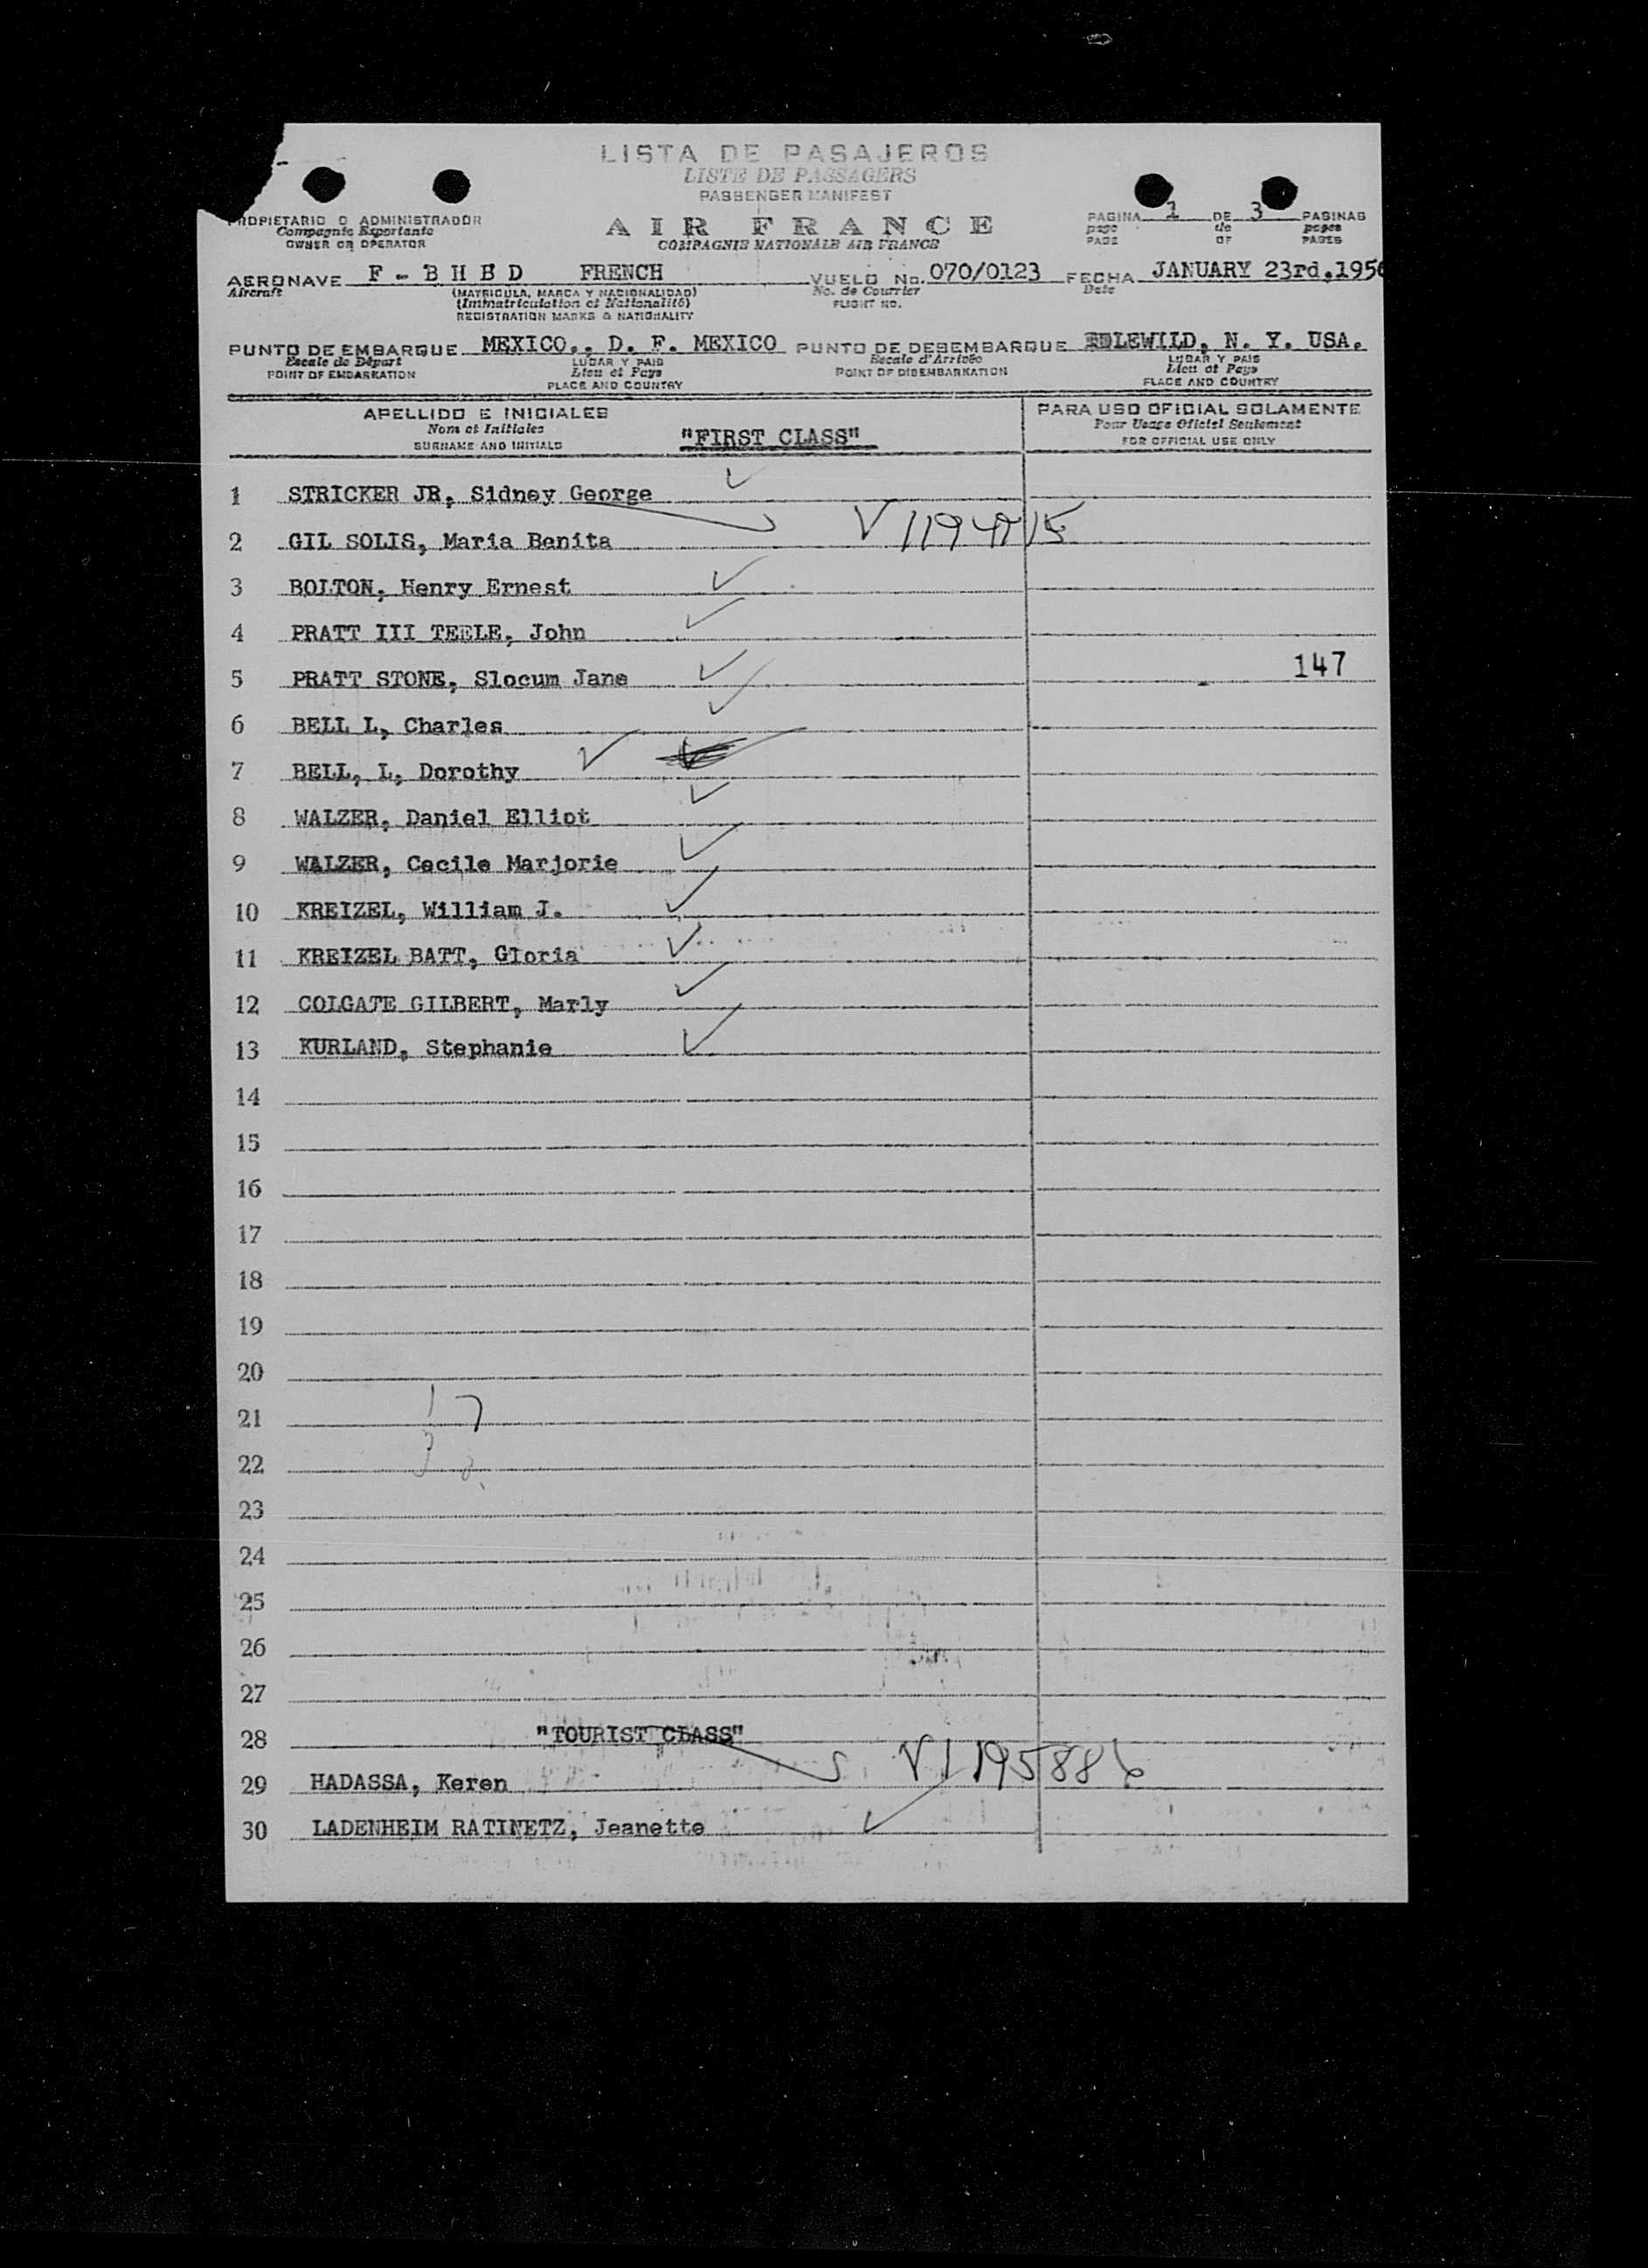 LISTA DE PASAJEROS
LISTE DE PASSAGERS
PASSENGER MANIFEST
PROPIETARIO O ADMINISTRADOR
Compagnie Exportante
OWNER OR OPERATOR
AIR FRANCE
COMPAGNIE NATIONALE AIR FRANCE
PAGINA 1 DE 3 PAGINAS
page de pages
PAGE OF PAGES
AERONAVE F - B H B D FRENCH VUELO No. 070/0123 FECHA JANUARY 23rd, 195
Aircraft (MATRICULA, MARCA Y NACIONALIDAD) No. de Courrier Date
(Immatriculation et Nationalité) FLIGHT NO.
REGISTRATION MARKS & NATIONALITY
PUNTO DE EMBARQUE MEXICO,, D. F. MEXICO PUNTO DE DESEMBARQUE IDLEWILD, N. Y. USA.
Escale de Départ LUGAR Y PAIS Escale d'Arrivée LUGAR Y PAIS
POINT OF EMBARKATION Lieu et Pays POINT OF DISEMBARKATION Lieu et Pays
PLACE AND COUNTRY PLACE AND COUNTRY
APELLIDO E INICIALES PARA USO OFICIAL SOLAMENTE
Nom et Initiales Pour Usage Oficiel Seulement
SURNAME AND INITIALS "FIRST CLASS" FOR OFFICIAL USE ONLY
1 STRICKER JR, Sidney George
2 GIL SOLIS, Maria Benita
3 BOLTON, Henry Ernest
4 PRATT III TEELE, John
5 PRATT STONE, Slocum Jane 147
6 BELL L, Charles
7 BELL, L, Dorothy
8 WALZER, Daniel Elliot
9 WALZER, Cecile Marjorie
10 KREIZEL, William J.
11 KREIZEL BATT, Gloria
12 COLGATE GILBERT, Marly
13 KURLAND, Stephanie
14
15
16
17
18
19
20
21 17
22
23
24
25
26
27
28 "TOURIST CLASS"
29 HADASSA, Keren V1195886
30 LADENHEIM RATINETZ, Jeanette